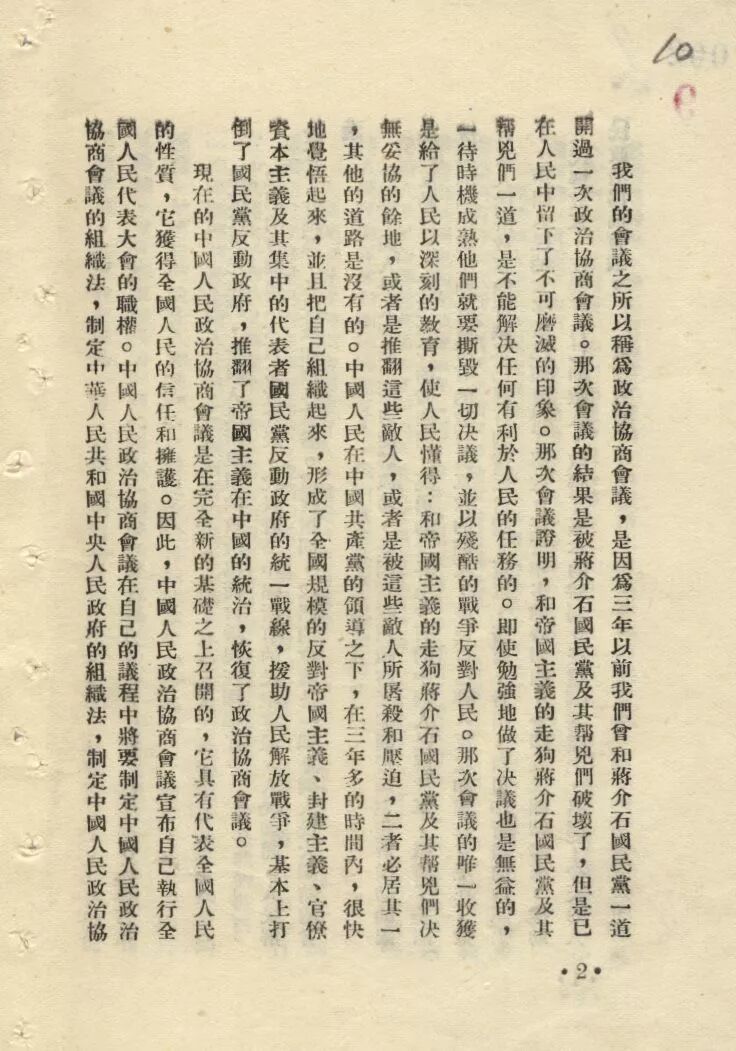 10
9
我們的會議之所以稱爲政治協商會議，是因爲三年以前我們曾和蔣介石國民黨一道
開過一次政治協商會議。那次會議的結果是被蔣介石國民黨及其幫兇們破壞了，但是已
在人民中留下了不可磨滅的印象。那次會議證明，和帝國主義的走狗蔣介石國民黨及其
幫兇們一道，是不能解決任何有利於人民的任務的。即使勉強地做了決議也是無益的，
一待時機成熟他們就要撕毀一切決議，並以殘酷的戰爭反對人民。那次會議的唯一收獲
是給了人民以深刻的教育，使人民懂得：和帝國主義的走狗蔣介石國民黨及其幫兇們決
無妥協的餘地，或者是推翻這些敵人，或者是被這些敵人所屠殺和壓迫，二者必居其一
，其他的道路是沒有的。中國人民在中國共產黨的領導之下，在三年多的時間內，很快
地覺悟起來，並且把自己組織起來，形成了全國規模的反對帝國主義、封建主義、官僚
資本主義及其集中的代表者國民黨反動政府的統一戰線，援助人民解放戰爭，基本上打
倒了國民黨反動政府，推翻了帝國主義在中國的統治，恢復了政治協商會議。
現在的中國人民政治協商會議是在完全新的基礎之上召開的，它具有代表全國人民
的性質，它獲得全國人民的信任和擁護。因此，中國人民政治協商會議宣布自己執行全
國人民代表大會的職權。中國人民政治協商會議在自己的議程中將要制定中國人民政治
協商會議的組織法，制定中華人民共和國中央人民政府的組織法，制定中國人民政治協
•2•